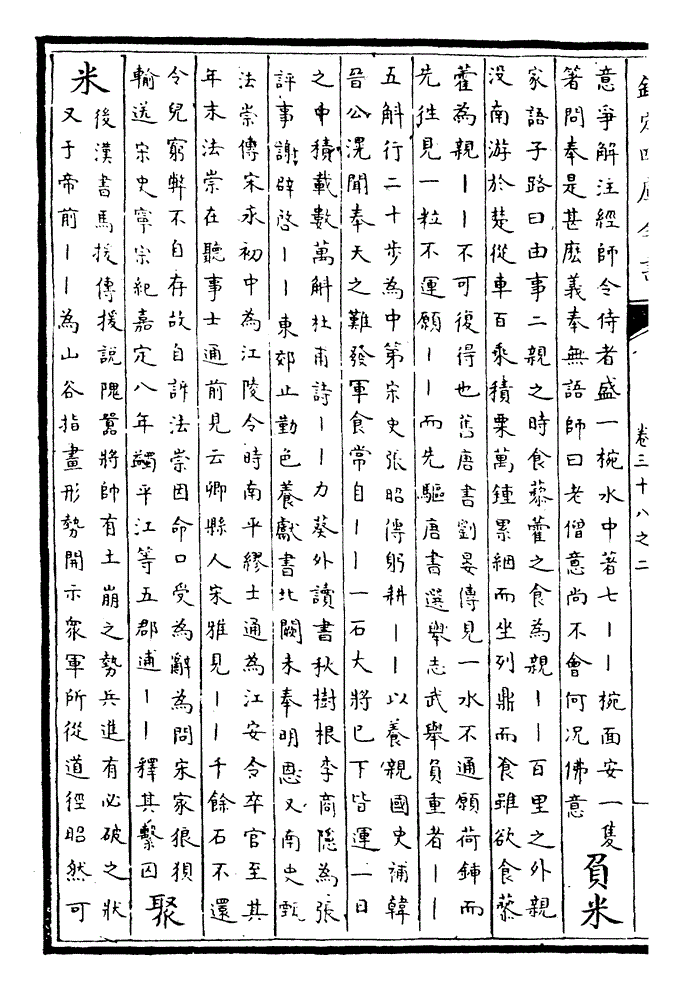 欽定四庫全書
卷三十八之二
意爭解注經師令侍者盛一椀水中著七丨丨椀面安一隻
箸問奉是甚麽義奉無語師曰老僧意尚不會何況佛意
負米
家語子路曰由事二親之時食藜藿之食為親丨丨百里之外親
没南游於楚從車百乘積粟萬鍾累綑而坐列鼎而食雖欲食藜
藿為親丨丨不可復得也舊唐書劉晏傳見一水不通願荷鍤而
先往見一粒不運願丨丨而先驅唐書選舉志武舉負重者丨丨
五斛行二十步為中第宋史張昭傳躬耕丨丨以養親國史補韓
晉公滉聞奉天之難發軍食常自丨丨一石大將已下皆運一日
之中積載數萬斛杜甫詩丨丨力葵外讀書秋樹根李商隱為張
評事謝辟啓丨丨東郊止勤色養獻書北闕未奉明恩又南史甄
法崇傳宋永初中為江陵令時南平繆士通為江安令卒官至其
年末法崇在聽事士通前見云卿縣人宋雅見丨丨千餘石不還
令兒窮弊不自存故自訴法崇因命口受為辭為問宋家狼狽
輸送宋史寧宗紀嘉定八年蠲平江等五郡逋丨丨釋其繫囚
聚
米
後漢書馬援傳援說隗囂將帥有土崩之勢兵進有必破之狀
又于帝前丨丨為山谷指畫形勢開示衆軍所從道徑昭然可